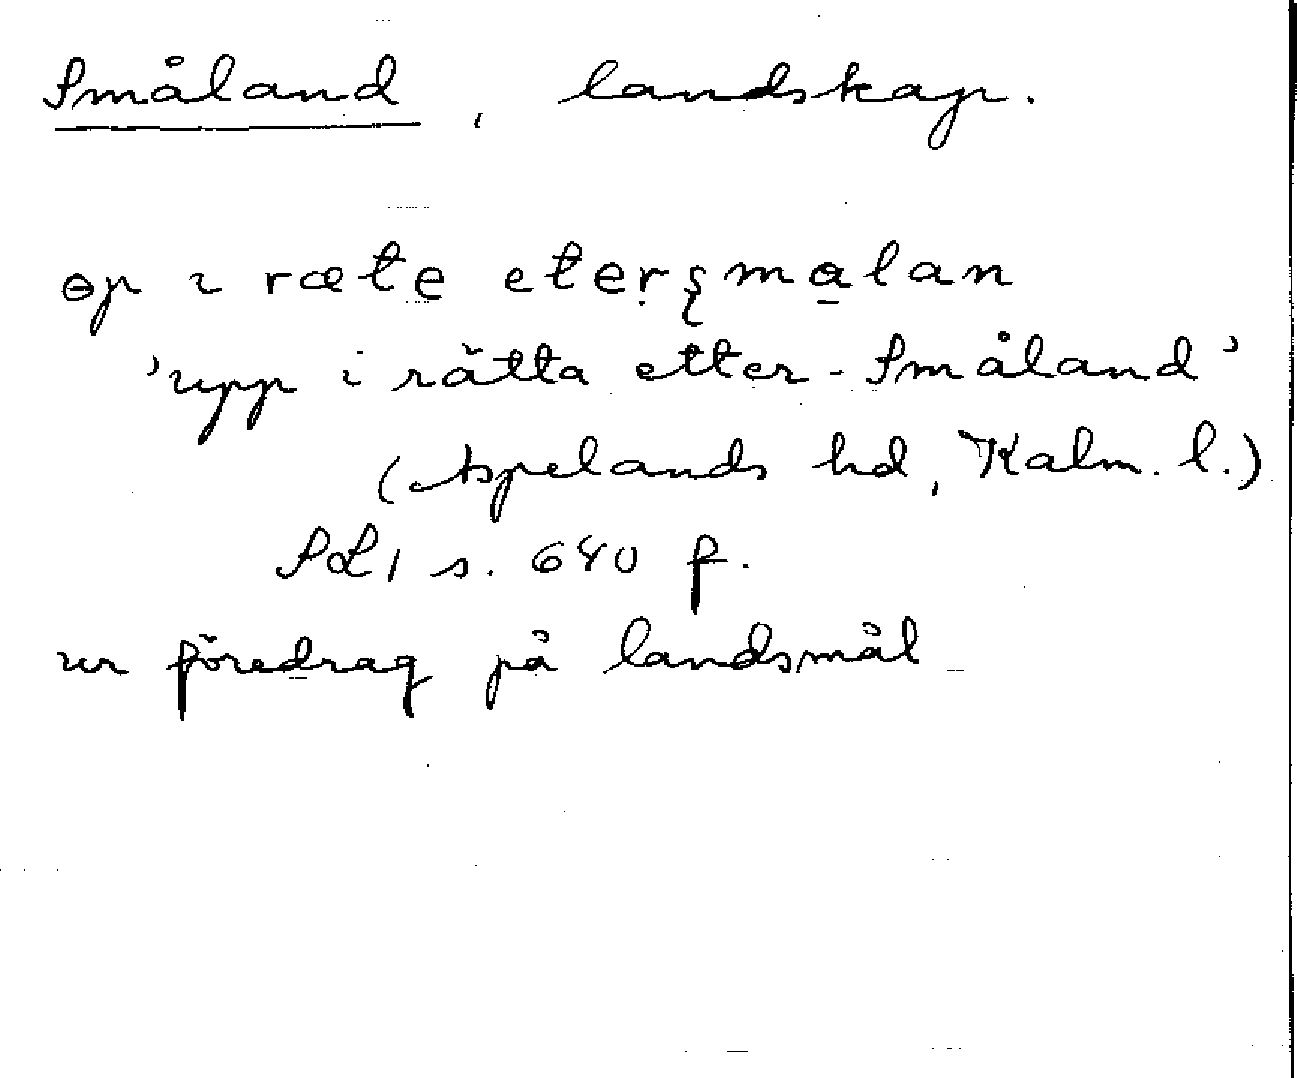 Småland, landskap.
ɵp ı ræte eter ʂmalan
'upp i rätta etter-Småland'
(Aspelands hd, Kalm. l.)
SL 1 s. 640 f.
ur föredrag på landsmål